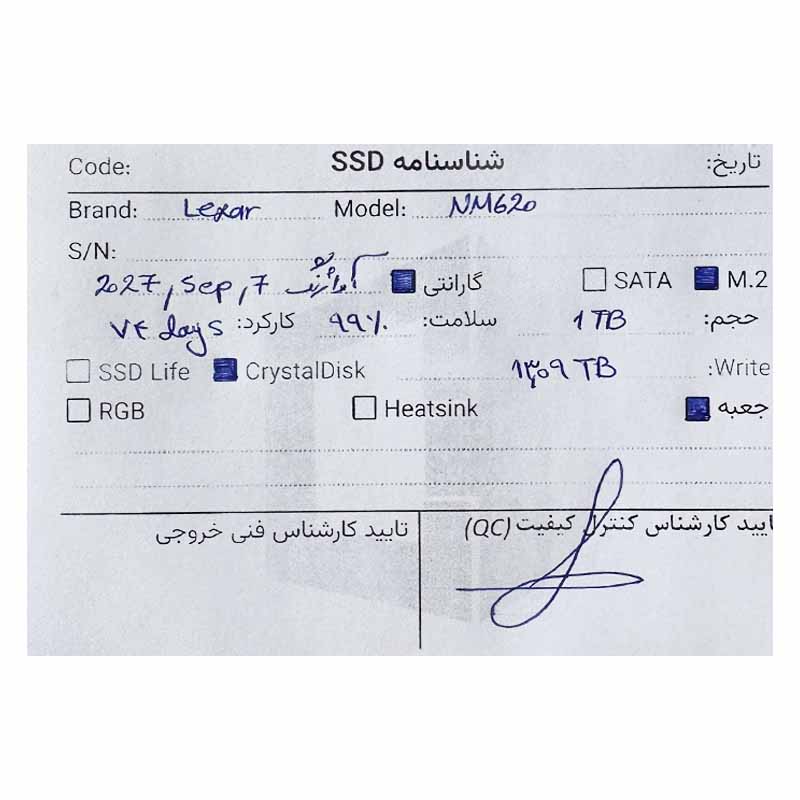 شناسنامه SSD تاریخ: Code:
Brand: Lexar Model: NM620
S/N:
M.2 SATA گارانتی آواژنگ 2027, Sep, 7
حجم: 1 TB سلامت: ۹۹٪ کارکرد: ۷۴ days
Write: ۱۳٫۰۹ TB CrystalDisk SSD Life
جعبه Heatsink RGB
تایید کارشناس کنترل کیفیت (QC) تایید کارشناس فنی خروجی